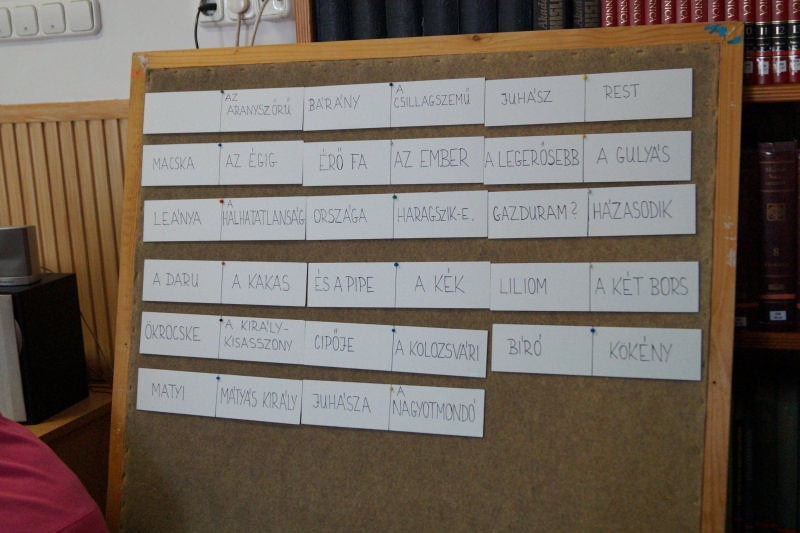 AZ ARANYSZŐRŰ BÁRÁNY A CSILLAGSZEMŰ JUHÁSZ REST
MACSKA AZ ÉGIG ÉRŐ FA AZ EMBER A LEGERŐSEBB A GULYÁS
LEÁNYA A HALHATATLANSÁG ORSZÁGA HARAGSZIK-E, GAZDURAM? HÁZASODIK
A DARU A KAKAS ÉS A PIPE A KÉK LILIOM A KÉT BORS
ÖKRÖCSKE A KIRÁLY-KISASSZONY CIPŐJE A KOLOZSVÁRI BÍRÓ KÖKÉNY
MATYI MÁTYÁS KIRÁLY JUHÁSZA A NAGYOTMONDÓ